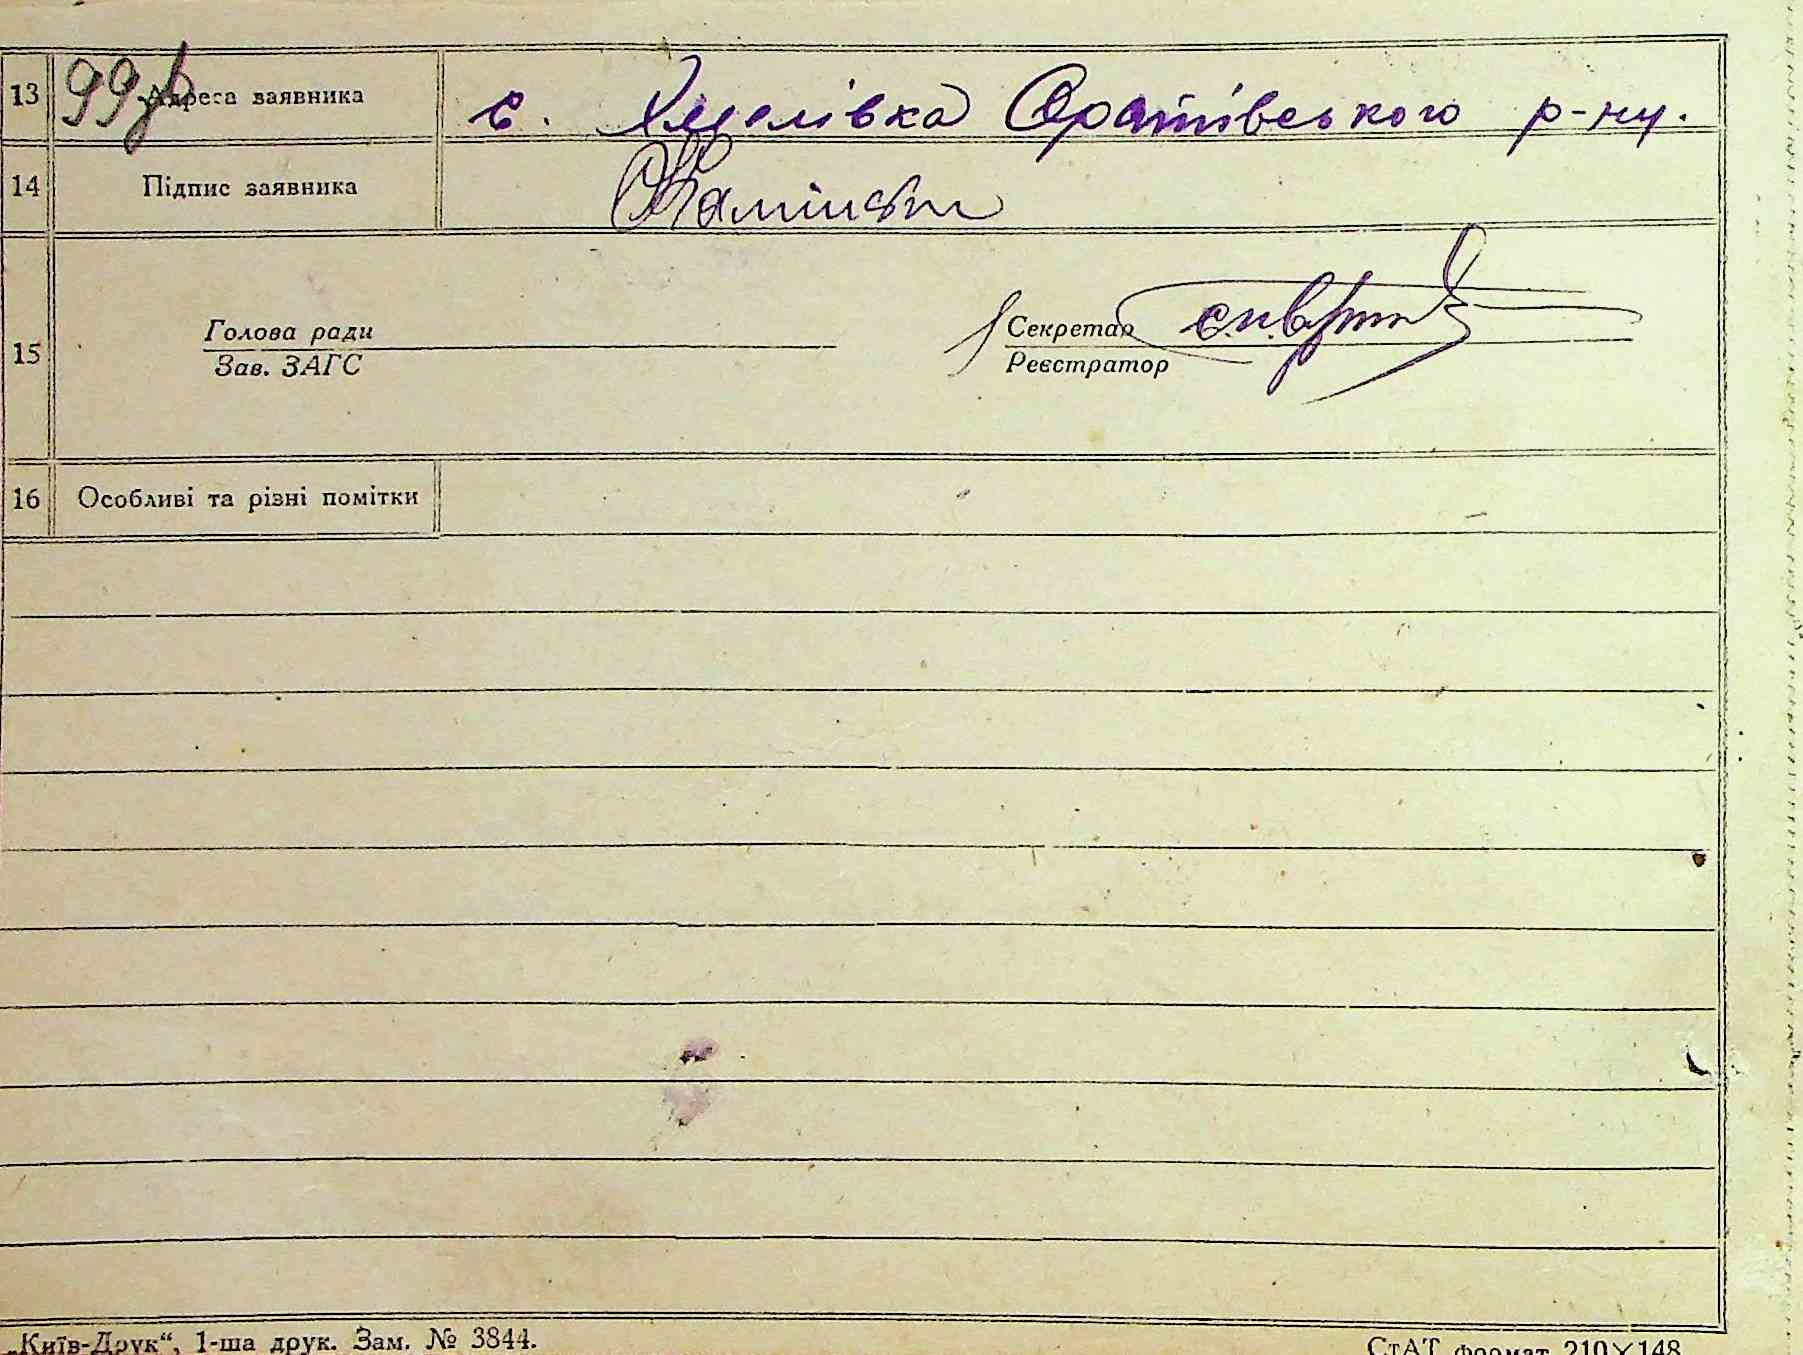 99зв
13 Адреса заявника с. Хмелівка Оратівського р-ну.
14 Підпис заявника
15 Голова ради
Зав. ЗАГС
Секретар
Реєстратор
16 Особливі та різні помітки
„Київ-Друк“, 1-ша друк. Зам. № 3844.
СтАТ формат 210×148